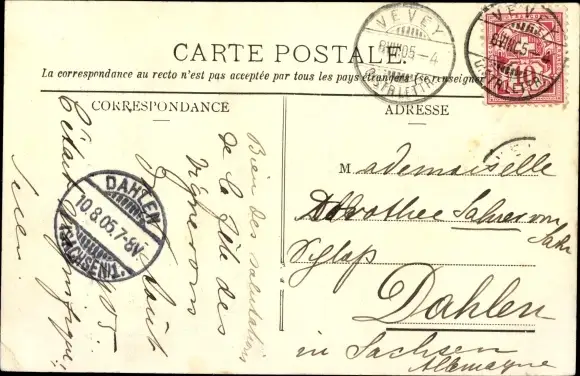 CARTE POSTALE.
La correspondance au recto n'est pas acceptée par tous les pays étrangers (se renseigner
CORRESPONDANCE
ADRESSE
VEVEY
VIII 05-4
DISTR. LETTR.
VEVEY
VIII 05
10
Bien des salutations
de la fête des
Vignerons
Août
1905.
C'était magnifique;
DAHLEN
10.8.05.7-8V.
(SACHSEN)
Mademoiselle
Dorothee Sahrer von
Sahr
Schloß
Dahlen
in Sachsen
Allemagne